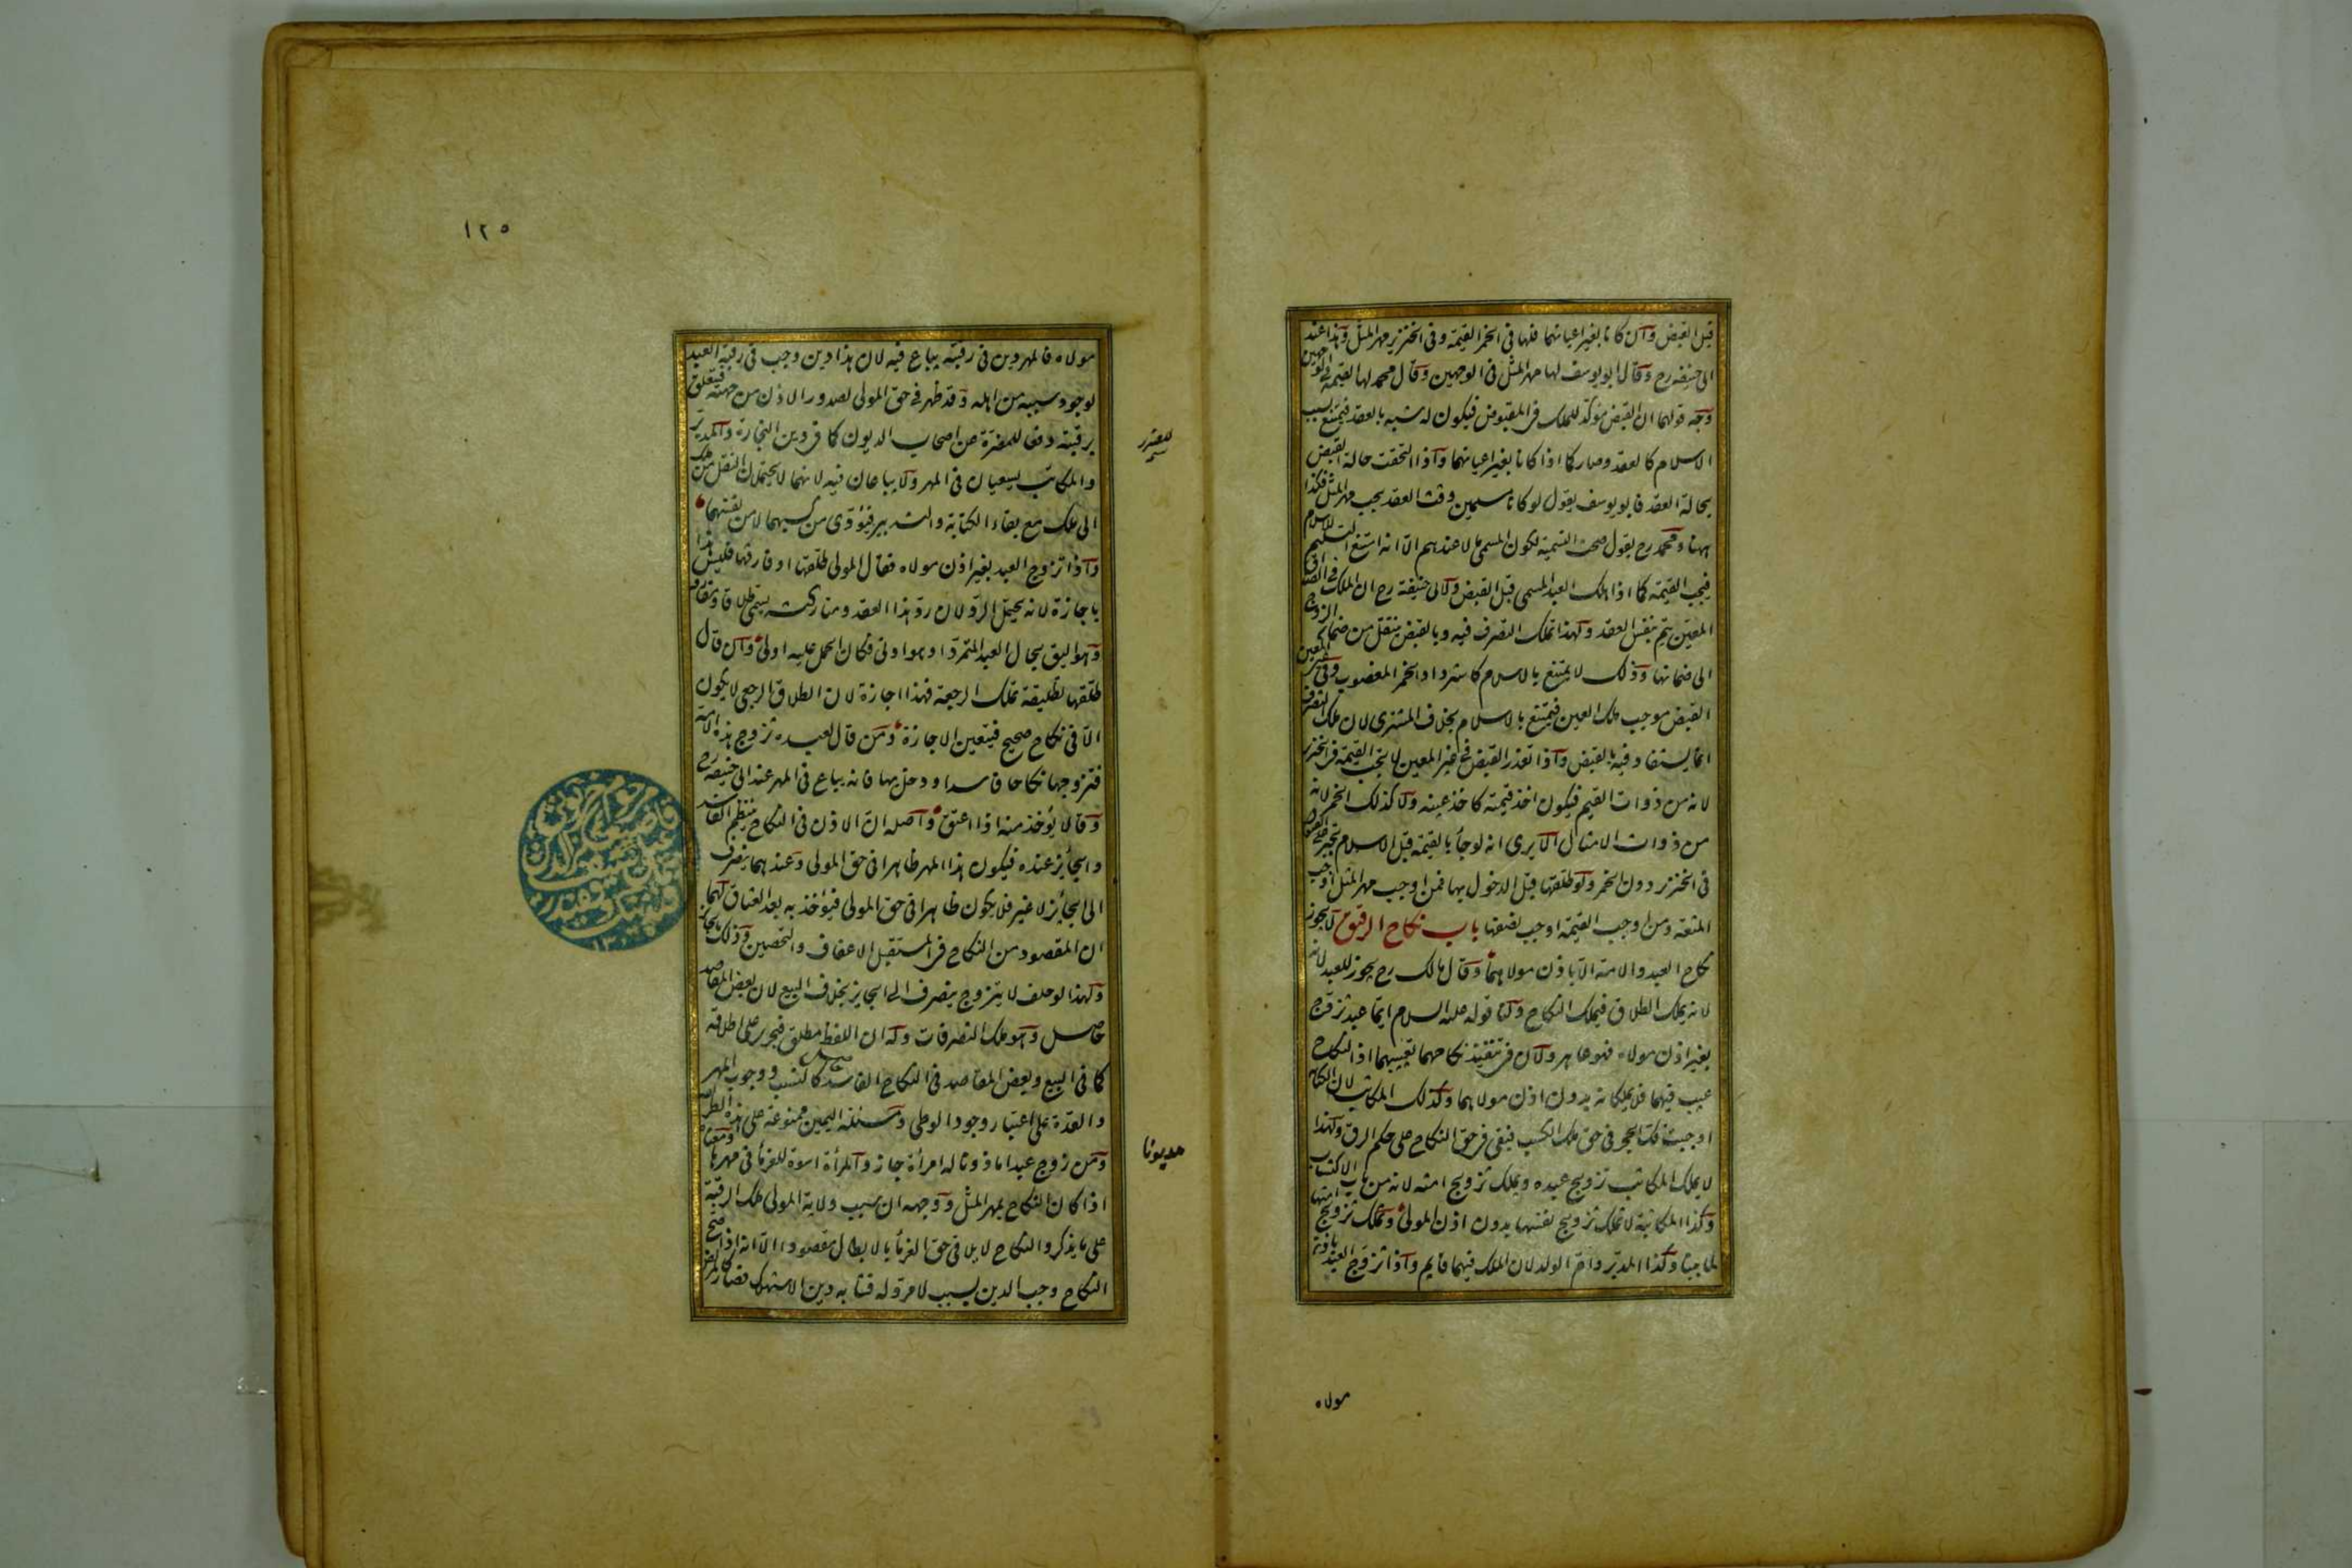 قبل القبض وان كانا بغير اعيانهما فلها فى الخمر القيمة وفى الخنزير مهر المثل وهذا عند
ابى حنيفة رح وقال ابو يوسف لها مهر المثل فى الوجهين وقال محمد لها القيمة فى الوجهين
وجه قولهما ان القبض مؤكد للملك فى المقبوض فيكون له شبه بالعقد فيمتنع بسبب
الاسلام كالعقد وصار كما اذا كانا بغير اعيانهما واذا التحقت حالة القبض
بحالة العقد فابو يوسف يقول لو كانا مسلمين وقت العقد يجب مهر المثل فكذا
ههنا ومحمد رح يقول صحت التسمية لكون المسمى مالا عندهم الا انه امتنع التسليم للاسلام
فيجب القيمة كما اذا هلك العبد المسمى قبل القبض ولابى حنيفة رح ان الملك فى الصداق
المعين يتم بنفس العقد ولهذا تملك التصرف فيه وبالقبض ينتقل من ضمان الزوج
الى ضمانها وذلك لا يمتنع بالاسلام كاسترداد الخمر المغصوب وفى غير المعين
القبض موجب ملك العين فيمتنع بالاسلام بخلاف المشترى لان ملك التصرف
انما يستفاد فيه بالقبض واذا تعذر القبض فى غير المعين لا يجب القيمة فى الخنزير
لانه من ذوات القيم فيكون اخذ قيمته كاخذ عينه ولا كذلك الخمر لانه
من ذوات الامثال الا يرى انه لو جاء بالقيمة قبل الاسلام تجبر على القبول
فى الخنزير دون الخمر ولو طلقها قبل الدخول بها فمن اوجب مهر المثل اوجب
المتعة ومن اوجب القيمة اوجب نصفها باب نكاح الرقيق لا يجوز
نكاح العبد والامة الا باذن مولاهما وقال مالك رح يجوز للعبد لانه
لانه يملك الطلاق فيملك النكاح ولنا قوله عليه السلام ايما عبد تزوج
بغير اذن مولاه فهو عاهر ولان فى تنفيذ نكاحهما تعييبهما اذ النكاح
عيب فيهما فلا يملكانه بدون اذن مولاهما وكذلك المكاتب لان الكتابة
اوجبت فك الحجر فى حق ملك الكسب فبقى فى حق النكاح على حكم الرق ولهذا
لا يملك المكاتب تزويج عبده ويملك تزويج امته لانه من باب الاكتساب
وكذا المكاتبة لا تملك تزويج نفسها بدون اذن المولى وتملك تزويج امتها
لما بينا وكذا المدبر وام الولد لان الملك فيهما قايم واذا تزوج العبد باذن
مولاه
١٢٥
مولاه فالمهر دين فى رقبته يباع فيه لان هذا دين وجب فى رقبة العبد
لوجود سببه من اهله وقد ظهر فى حق المولى لصدور الاذن من جهته فيتعلق
برقبته دفعا للمضرة عن اصحاب الديون كما فى دين التجارة والمدبر
والمكاتب يسعيان فى المهر ولا يباعان فيه لانهما لا يحتملان النقل من ملك
الى ملك مع بقاء الكتابة والتدبير فيؤدى من كسبهما لا من نفسهما
واذا تزوج العبد بغير اذن مولاه فقال المولى طلقها او فارقها فليس هذا
باجازة لانه يحتمل الرد لان رد هذا العقد ومتاركته يسمى طلاقا ومفارقة
وهو اليق بحال العبد المتمرد او هو ادنى فكان الحمل عليه اولى وان قال
طلقها تطليقة تملك الرجعة فهذا اجازة لان الطلاق الرجعى لا يكون
الا فى نكاح صحيح فيتعين الاجازة ومن قال لعبده تزوج هذه الامة
فتزوجها نكاحا فاسدا ودخل بها فانه يباع فى المهر عند ابى حنيفة رح
وقالا يؤخذ منه اذا اعتق واصله ان الاذن فى النكاح ينتظم الفاسد
والجائز عنده فيكون هذا المهر ظاهرا فى حق المولى وعندهما ينصرف
الى الجائز لا غير فلا يكون ظاهرا فى حق المولى فيؤخذ به بعد العتاق لهما
ان المقصود من النكاح فى المستقبل الاعفاف والتحصين وذلك بالجائز
ولهذا لو حلف لا يتزوج ينصرف الى الجايز بخلاف البيع لان بعض المقاصد
حاصل وهو ملك التصرفات وله ان اللفظ مطلق فيجرى على اطلاقه
كما فى البيع وبعض المقاصد فى النكاح الفاسد حاصل كالنسب ووجوب المهر
والعدة على اعتبار وجود الوطى ومسئلة اليمين ممنوعة على هذه الطريقة
ومن زوج عبدا ماذونا له امرأة جاز والمرأة اسوة للغرماء فى مهرها ومعناه
اذا كان النكاح بمهر المثل ووجهه ان سبب ولاية المولى ملك الرقبة
على ما يذكر والنكاح لا يلاقى حق الغرماء بالابطال مقصودا الا انه اذا صح
النكاح وجب الدين بسبب لا مرد له فشابه دين الاستهلاك فصار كالمريض
مديونا